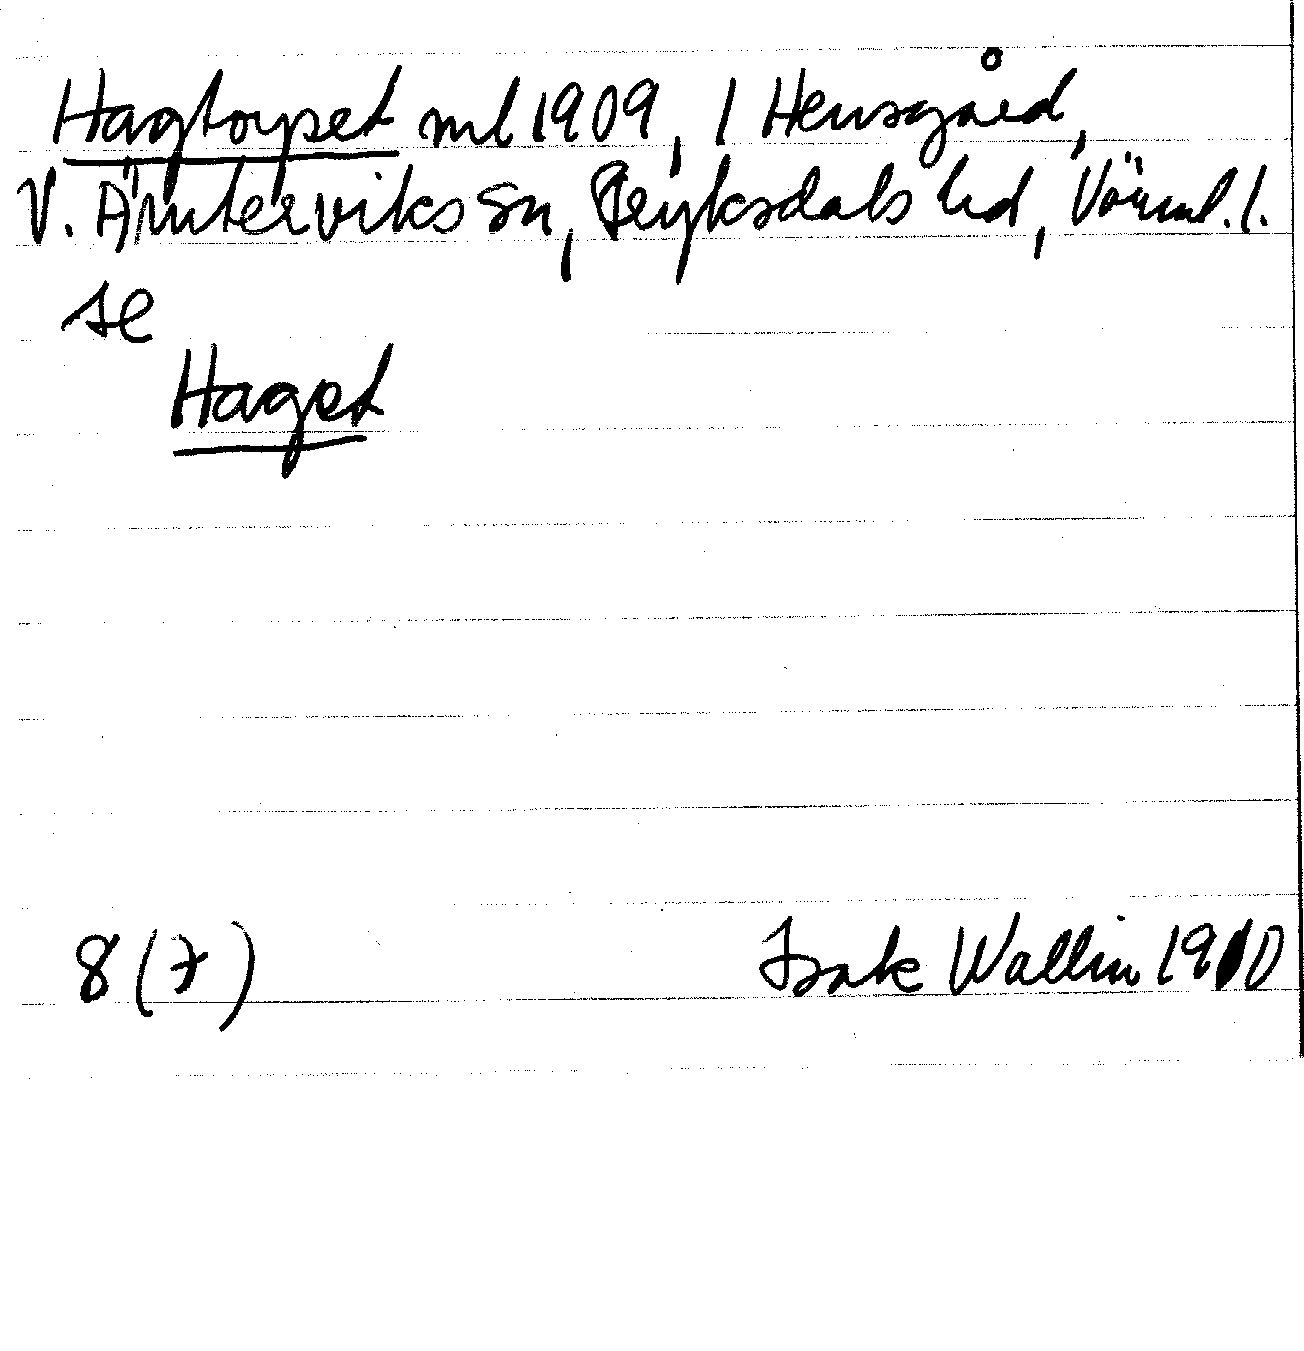 Hagtorpet ml 1909, / Hensgård,
V. Ämterviks sn, Fryksdals hd, Värml. l.
se
Haget
8 (7)
Isak Wallin 1910